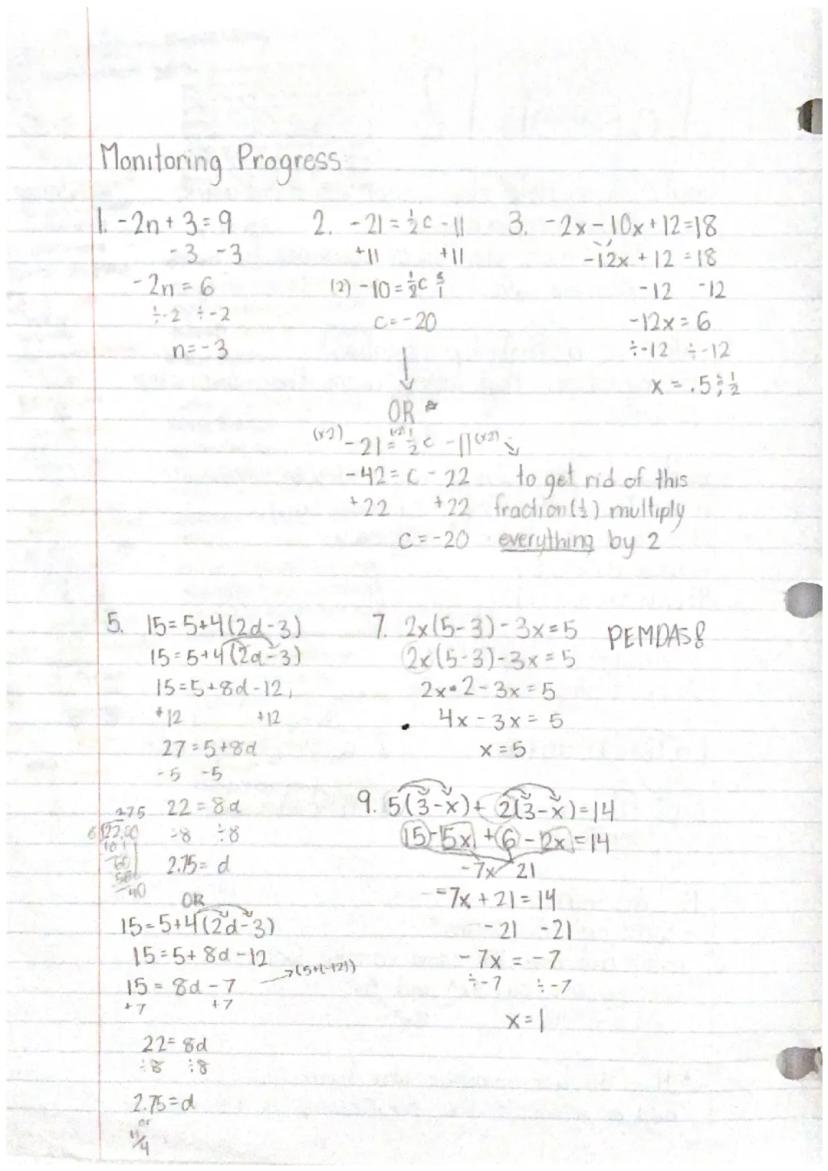 Monitoring Progress
1. -2n + 3 = 9
-3 -3
-2n = 6
÷-2 ÷-2
n = -3
2. -21 = ½c - 11
+11 +11
(2) -10 = ½c
c = -20
OR
(x2) -21 = ½c - 11 (x2)
-42 = c - 22
+22 +22
c = -20
to get rid of this
fraction (½) multiply
everything by 2
3. -2x - 10x + 12 = 18
-12x + 12 = 18
-12 -12
-12x = 6
÷-12 ÷-12
x = .5 ; ½
5. 15 = 5 + 4(2d - 3)
15 = 5 + 4(2d - 3)
15 = 5 + 8d - 12
+12 +12
27 = 5 + 8d
-5 -5
22 = 8d
÷8 ÷8
2.75 = d
OR
15 = 5 + 4(2d - 3)
15 = 5 + 8d - 12
15 = 8d - 7 → (5+(-12))
+7 +7
22 = 8d
÷8 ÷8
2.75 = d
or
11/4
7. 2x(5-3) - 3x = 5 PEMDAS
2x(5-3) - 3x = 5
2x • 2 - 3x = 5
4x - 3x = 5
x = 5
9. 5(3-x) + 2(3-x) = 14
15 - 5x + 6 - 2x = 14
-7x 21
-7x + 21 = 14
-21 -21
-7x = -7
÷-7 ÷-7
x = 1